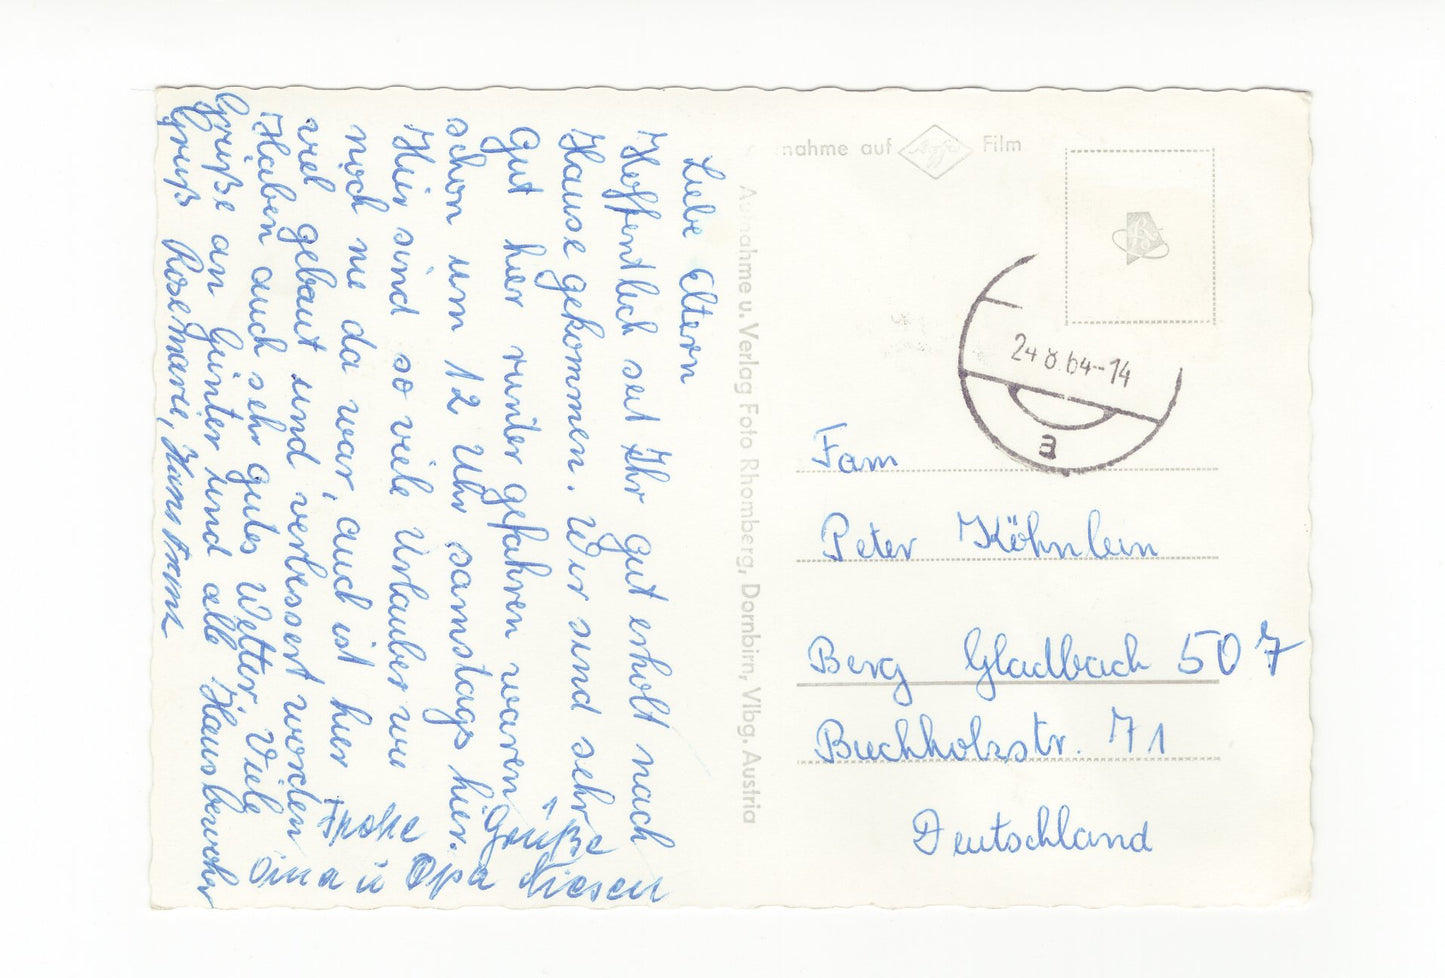 Liebe Eltern
Hoffentlich seit Ihr gut erholt nach
Hause gekommen. Wir sind sehr
gut hier runter gefahren waren
schon um 12 Uhr samstags hier.
Hier sind so viele Urlauber wie
noch nie da war, auch ist hier
viel gebaut und verbessert worden
Haben auch sehr gutes Wetter. Viele
Grüße an Günter und alle Hausbewohner
Gruß Rosemarie, Hans Franz
Frohe Grüße
Oma u Opa Niesen
Aufnahme u. Verlag Foto Rhomberg, Dornbirn, Vlbg. Austria
nahme auf Agfa Film
24 8.64-14
a
Fam
Peter Köhnlein
Berg Gladbach 507
Buchholzstr. 71
Deutschland